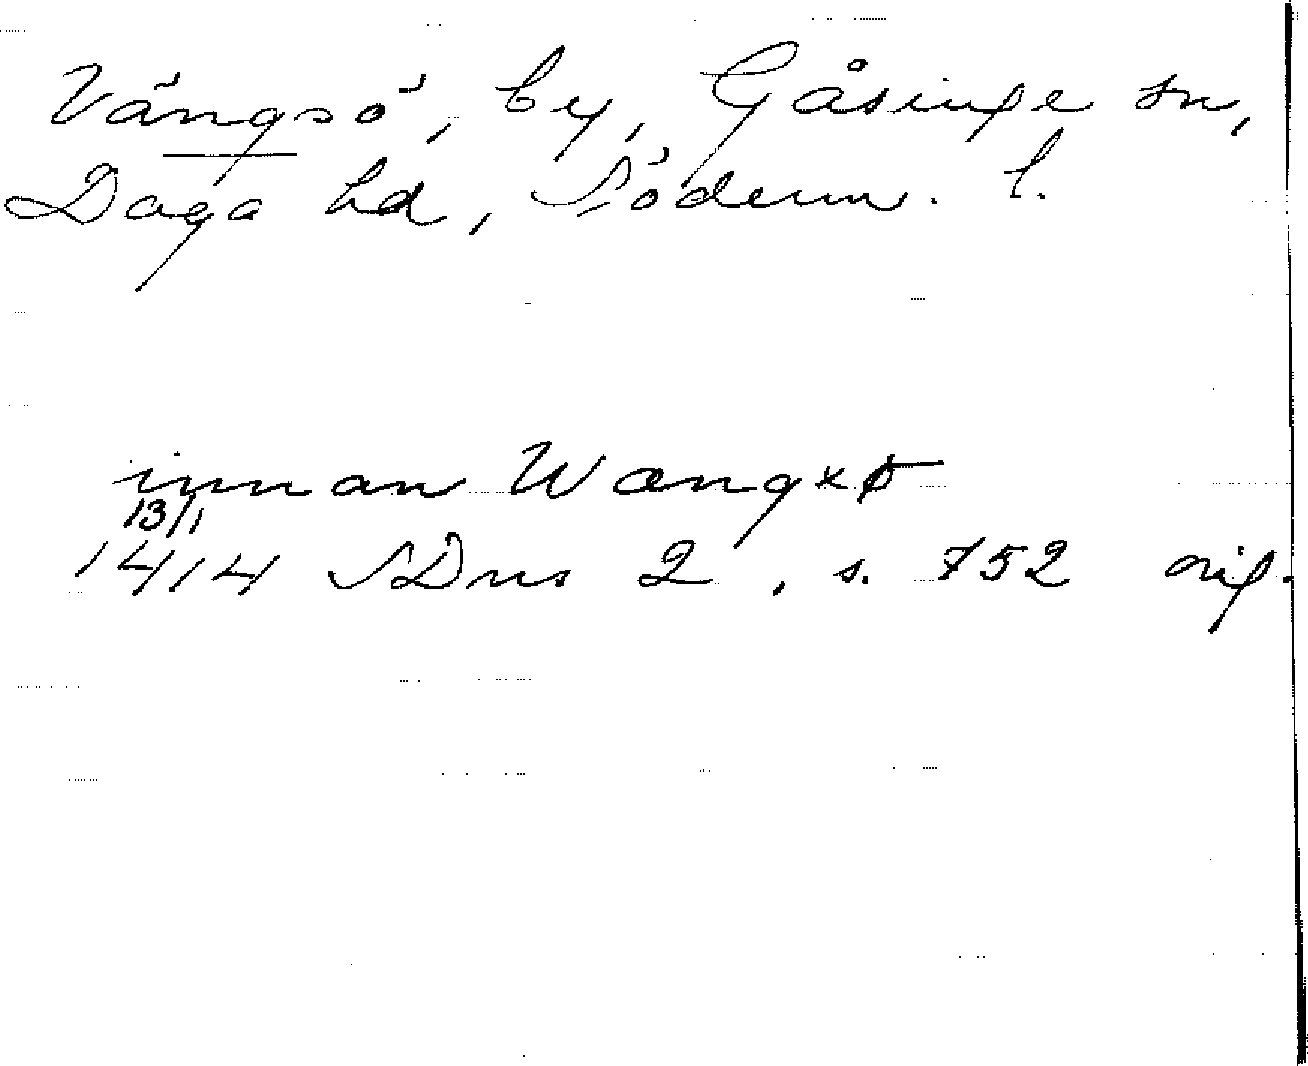 Vängsö, by, Gåsinge sn,
Daga hd, Söderm. l.
innan Wængxø
13/1
1414 SDns 2, s. 752 orig.